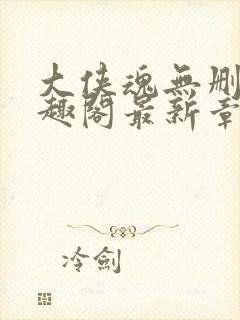 大侠魂無删
趣閣最新章
冷劍